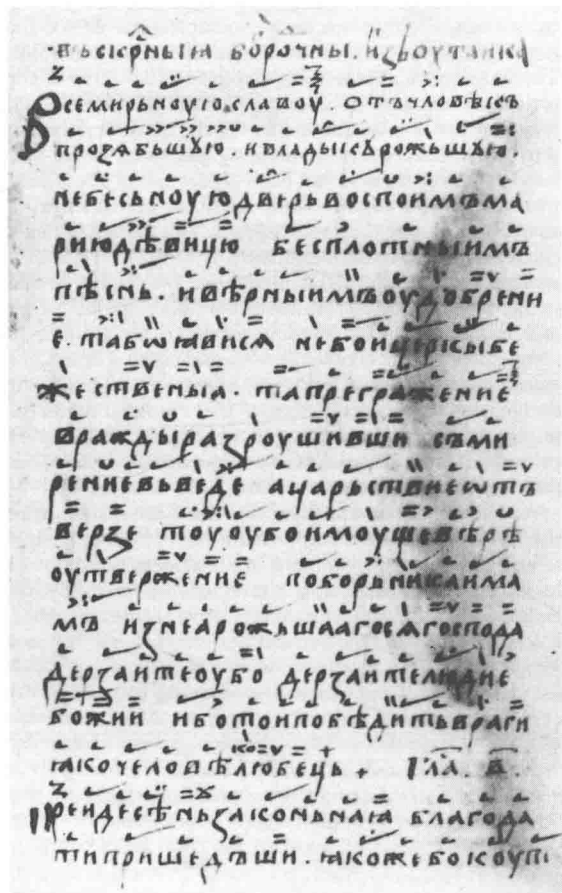 въскр҃ныꙗ
Всемирьноую славоу. отъ чловѣкъ
прозѧбъшюю. и владыкѹ рожьшюю.
небесьноую дверь воспоимъ ма
рию дѣвицю бесплотныимъ
пѣснь. и вѣрныимъ оудобрени
е. та бѡ ꙗвисѧ небо и церкы бе
жественыꙗ. та прегражение
вражды разроушивши съми
рение въведе а царьствие ѡтъ
верзе тоу оубо имоуще вѣрѣ
оутвержение поборьника има
мъ из неа рожьшаагосѧ господа
дерзаите оубо дерзаите людие
божии ибо тои побѣдить враги
ꙗко человѣлюбець + Гла. в.
Преиде сѣнь законьнаꙗ благода
ти пришедъши. ꙗкоже бо коупи